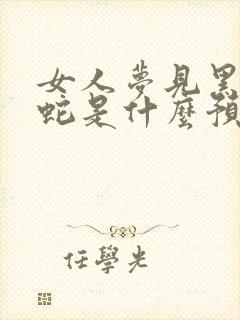 女人夢見黑
蛇是什麼預
任學光